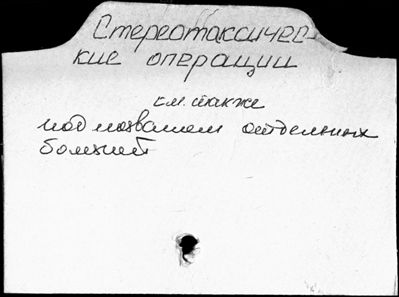 Стереотаксичес-
кие операции
см. также
под названием отдельных
болезней